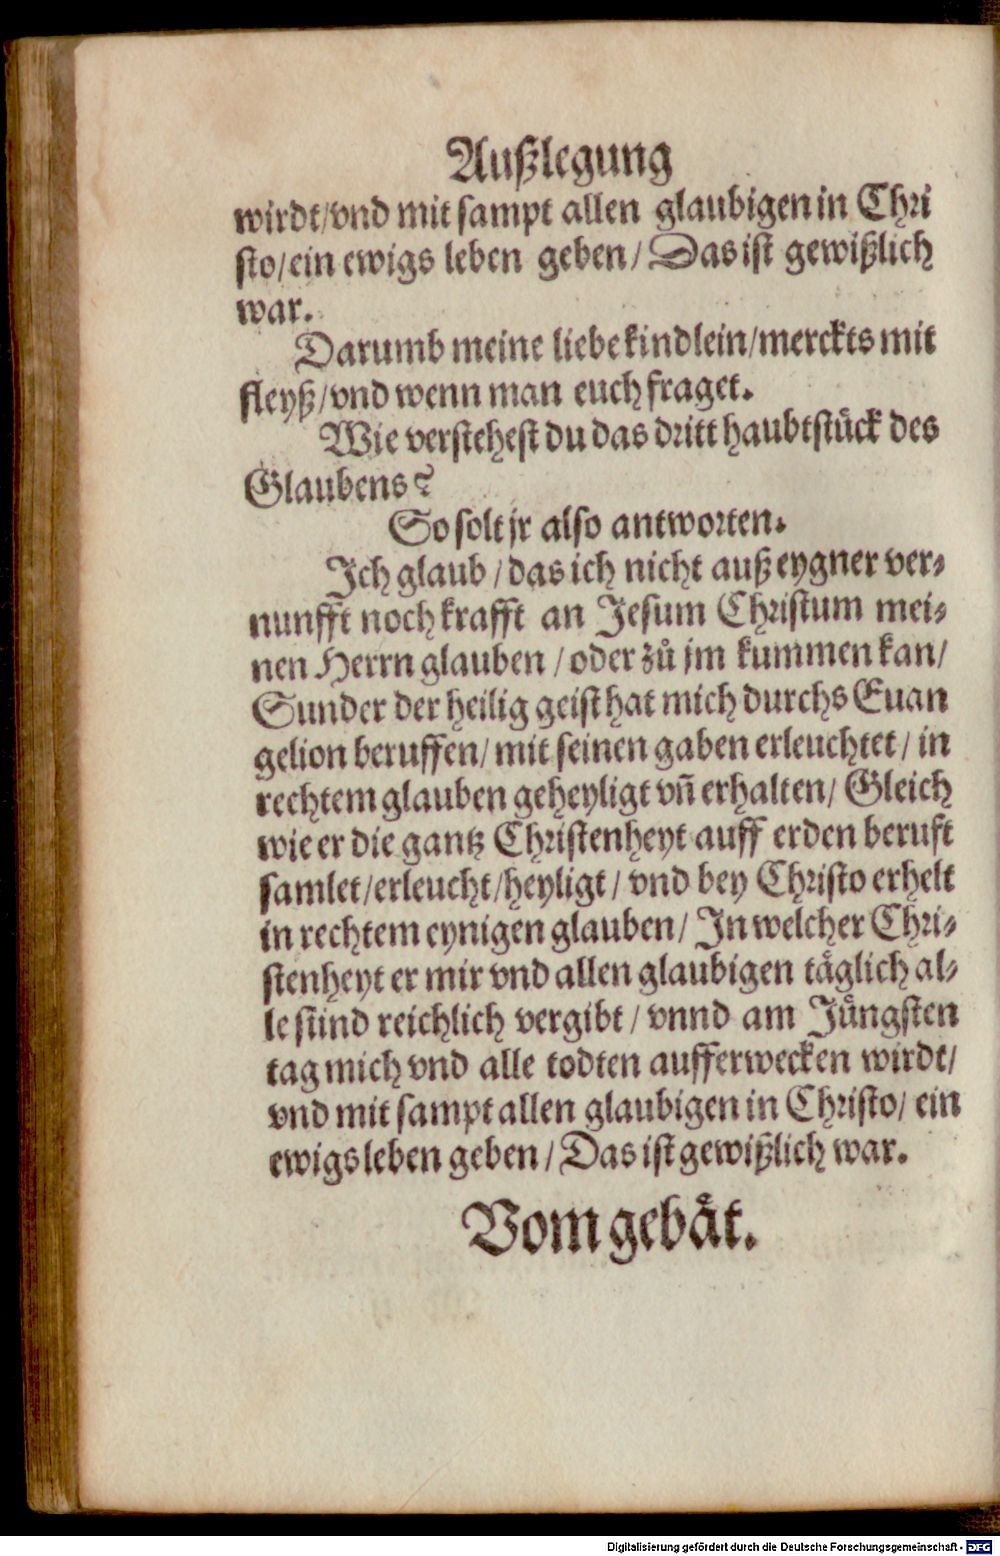 Außlegung
wirdt/vnd mit sampt allen glaubigen in Chri
sto/ein ewigs leben geben/ Das ist gewißlich
war.
Darumb meine liebe kindlein/merckts mit
fleyß/vnd wenn man euch fraget.
Wie verstehest du das dritt haubtstück des
Glaubens?
So solt jr also antworten.
Jch glaub/das ich nicht auß eygner ver-
nunfft noch krafft an Jesum Christum mei-
nen Herrn glauben/oder zů jm kummen kan/
Sunder der heilig geist hat mich durchs Euan
gelion beruffen/mit seinen gaben erleuchtet/in
rechtem glauben geheyligt vñ erhalten/Gleich
wie er die gantz Christenheyt auff erden beruft
samlet/erleucht/heyligt/vnd bey Christo erhelt
in rechtem eynigen glauben/Jn welcher Chri-
stenheyt er mir vnd allen glaubigen täglich al-
le sünd reichlich vergibt/vnnd am Jüngsten
tag mich vnd alle todten aufferwecken wirdt/
vnd mit sampt allen glaubigen in Christo/ein
ewigs leben geben/Das ist gewißlich war.
Vom gebät.
Digitalisierung gefördert durch die Deutsche Forschungsgemeinschaft - DFG